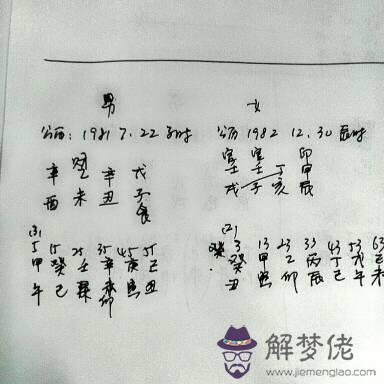 男 女
公历: 1981 7. 22 子时 公历 1982 12. 30 辰时
官 官 印
辛 辛 戊 壬 壬 丁 甲
酉 未 丑 子 戌 子 亥 辰
5 15 25 35 45 55 3 13 23 33 43 53 63
甲 癸 壬 辛 庚 己 癸 甲 乙 丙 丁 戊 己
午 巳 辰 卯 寅 丑 丑 寅 卯 辰 巳 午 未
解梦佬
www.jiemenglao.com